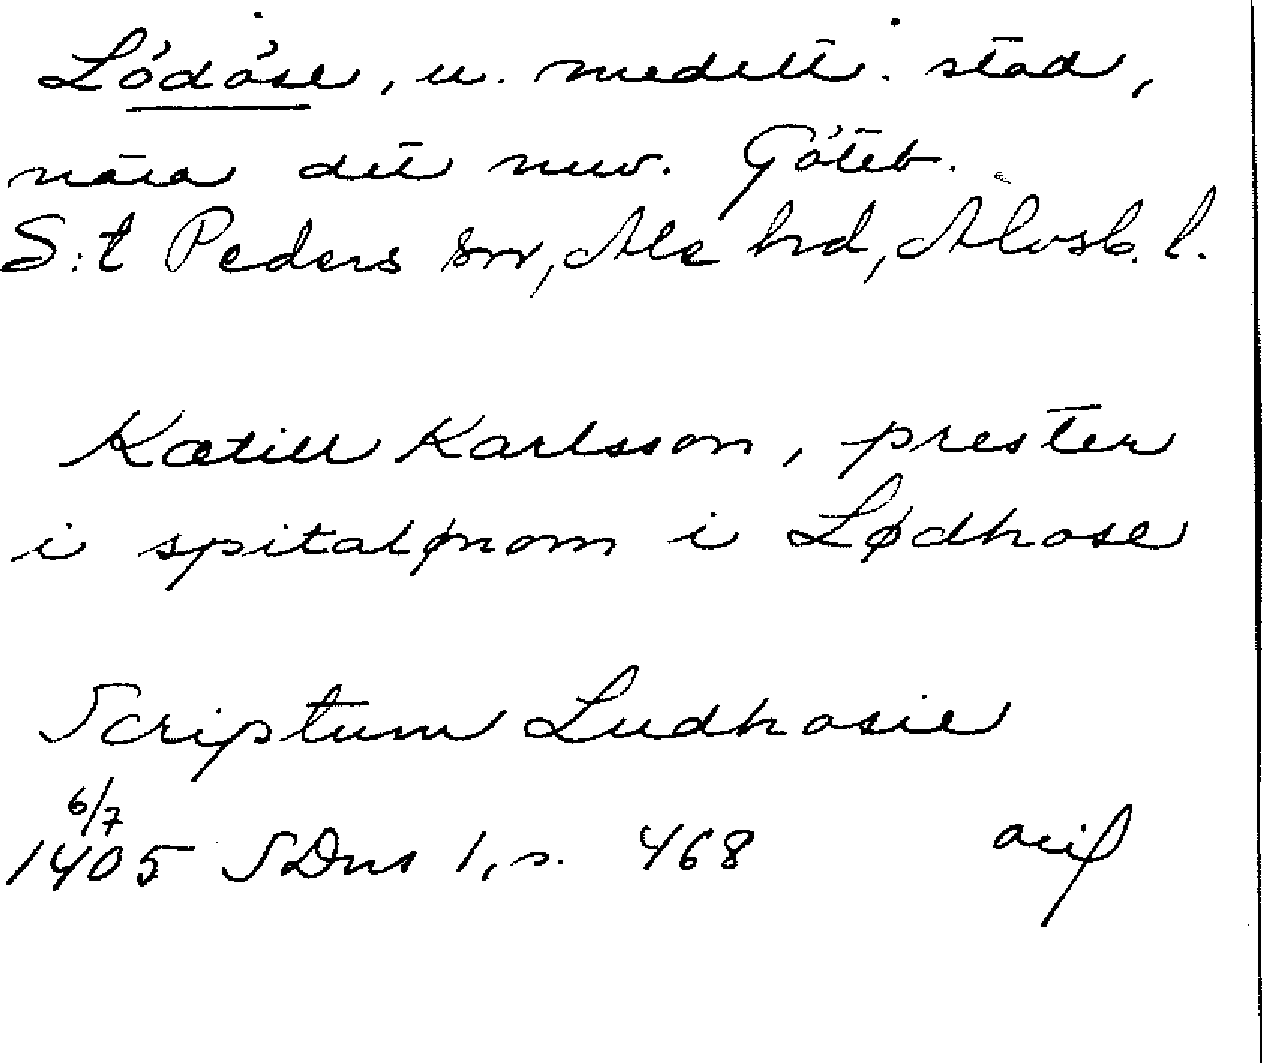 Lödöse, u. medelt. stad,
nära det nuv. Göteb.
S:t Peders sn, Ale hd, Älvsb. l.
Kætill Karlsson, prester
i spitalønom i Lødhose
Scriptum Ludhosie
6/7
1405 SDns 1, s. 468